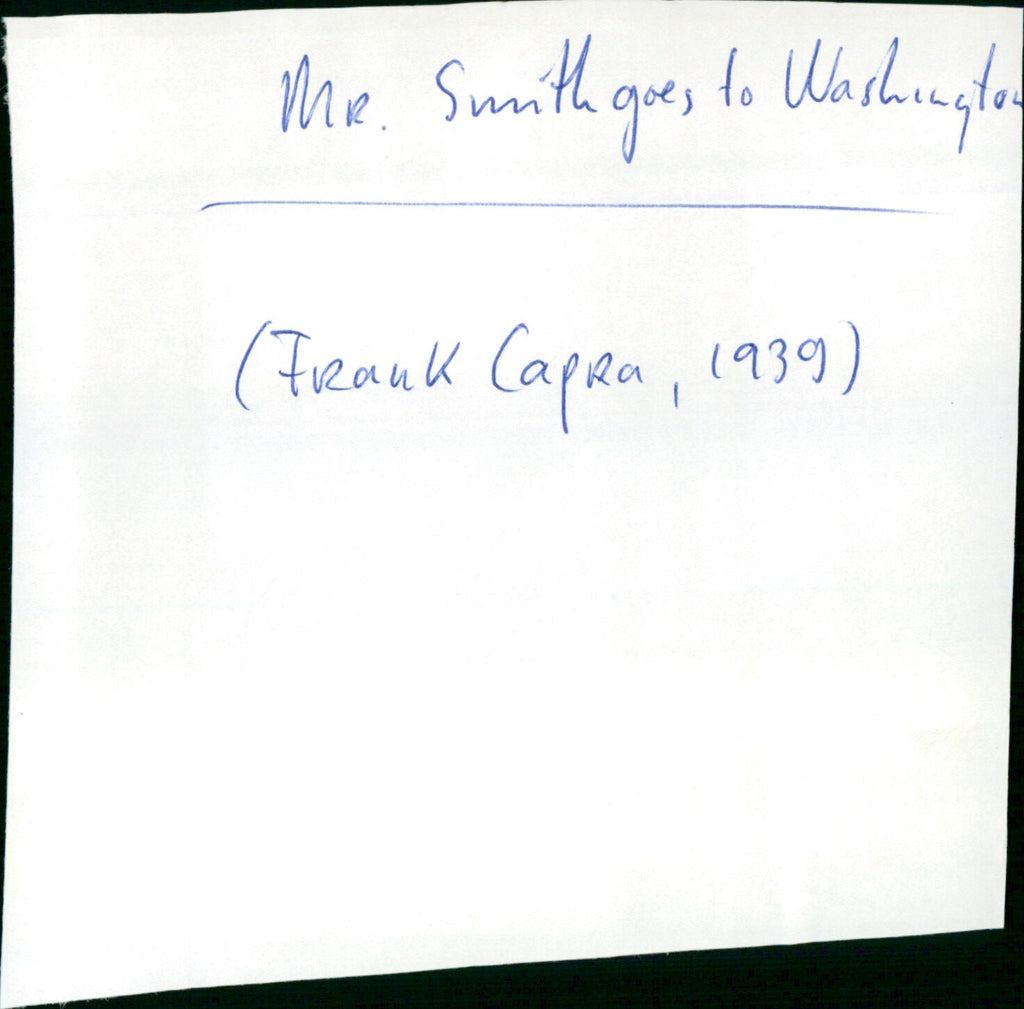 Mr. Smith goes to Washington
(Frank Capra, 1939)